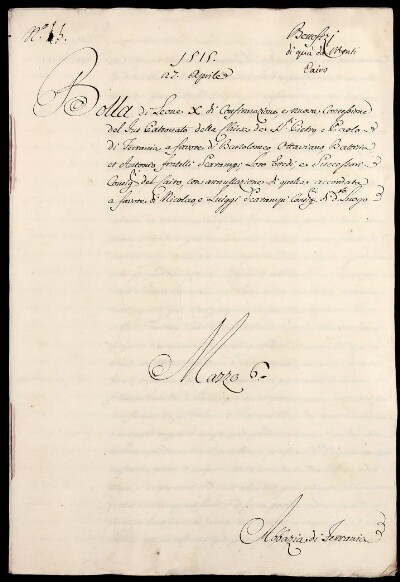 N.º 15.
Benefizj
di quà da Monti
Cairo
1515.
27. Aprile
Bolla di Leone X di Confirmazione e nuova Concessione
del Jus Patronato della Chiesa de SS.ti Pietro e Paolo
di Ferrania a favore di Bartolomeo Ottaviano Battista
et Antonio fratelli Scarampi, Loro Eredi, e Successori
Consig.ri del Cairo, con annullazione di quella accordata
a favore di Nicolao, e Luiggi Scarampi Consig.ri di d.to Luogo
Mazzo 6.
Abbazia di Ferrania